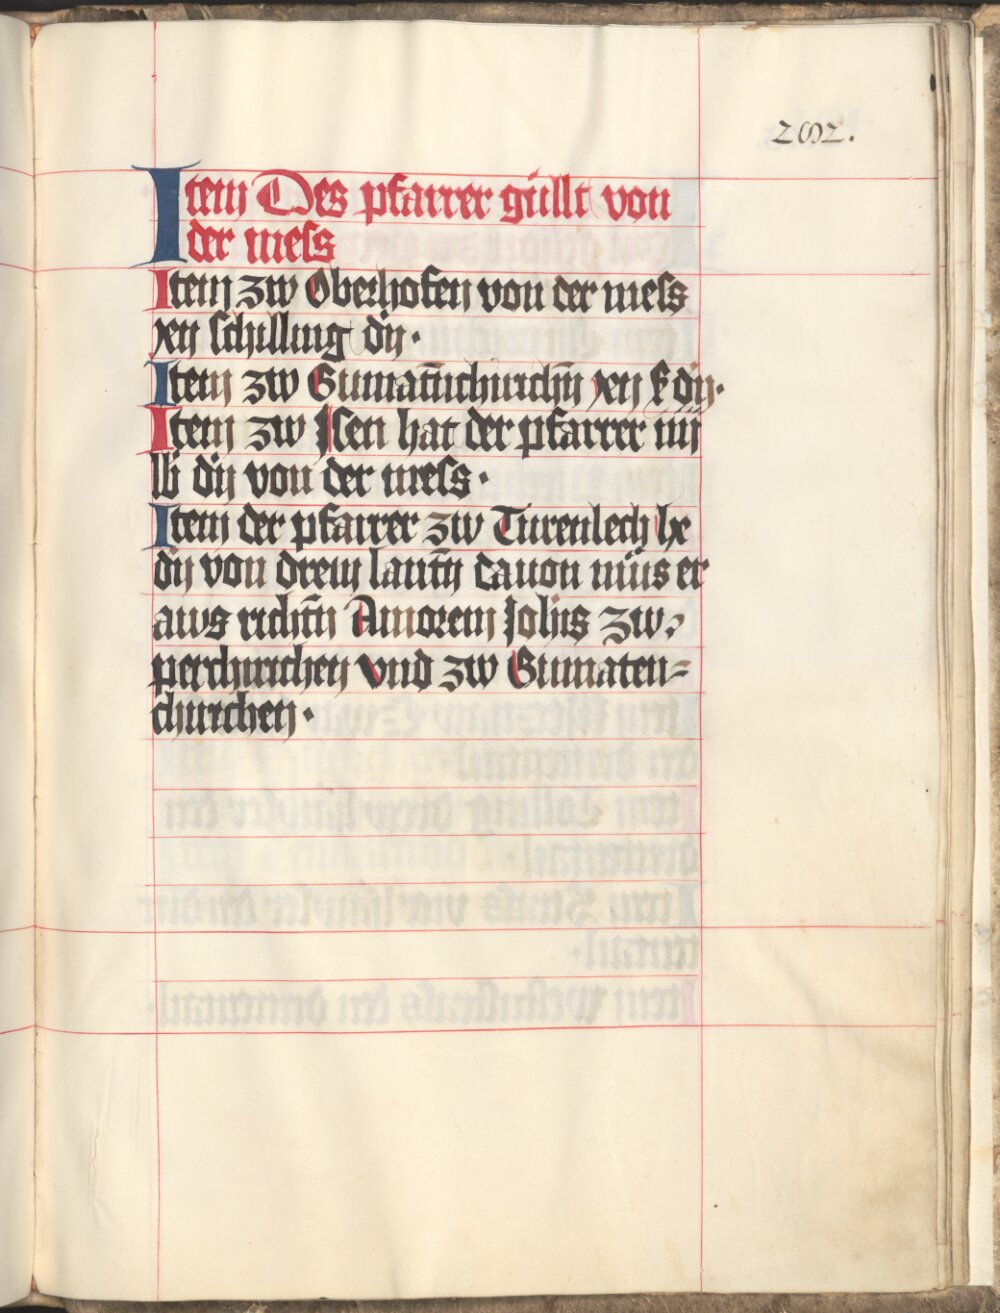 202.
Item Des pfarrer güllt von
der mess
Item zw Oberhofen von der mess
xij schilling dn·
Item zw Gumatn̄churchn̄ xij ß dn·
Item zw Isen hat der pfarrer iiij
lb dn von der mess·
Item der pfarrer zw Turenlech lx
dn von drein lautn̄ dauon müs er
aws richtn̄ Amorem Johis zw
perchirchen vnd zw Gumaten-
churchen·